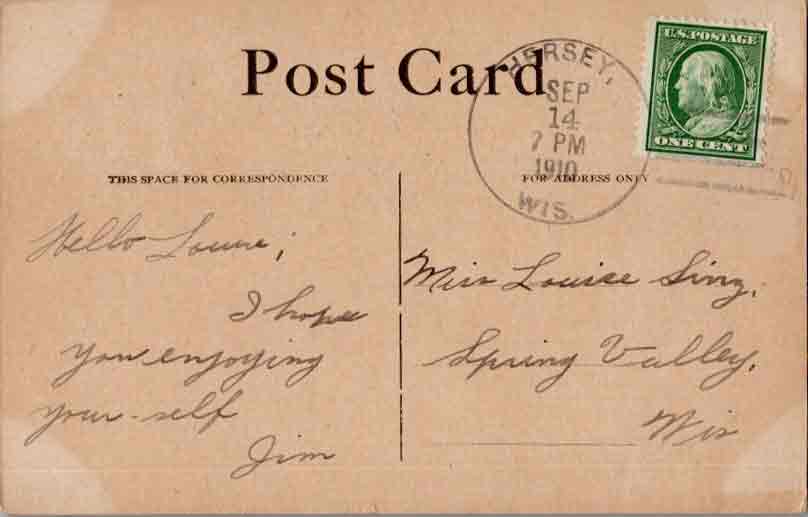 Post Card
HERSEY,
SEP
14
7 PM
1910
WIS.
U.S. POSTAGE
ONE CENT
THIS SPACE FOR CORRESPONDENCE
Hello Louise;
I hope
you enjoying
your-self
Jim
FOR ADDRESS ONLY
Miss Louise Sing,
Spring Valley,
Wis